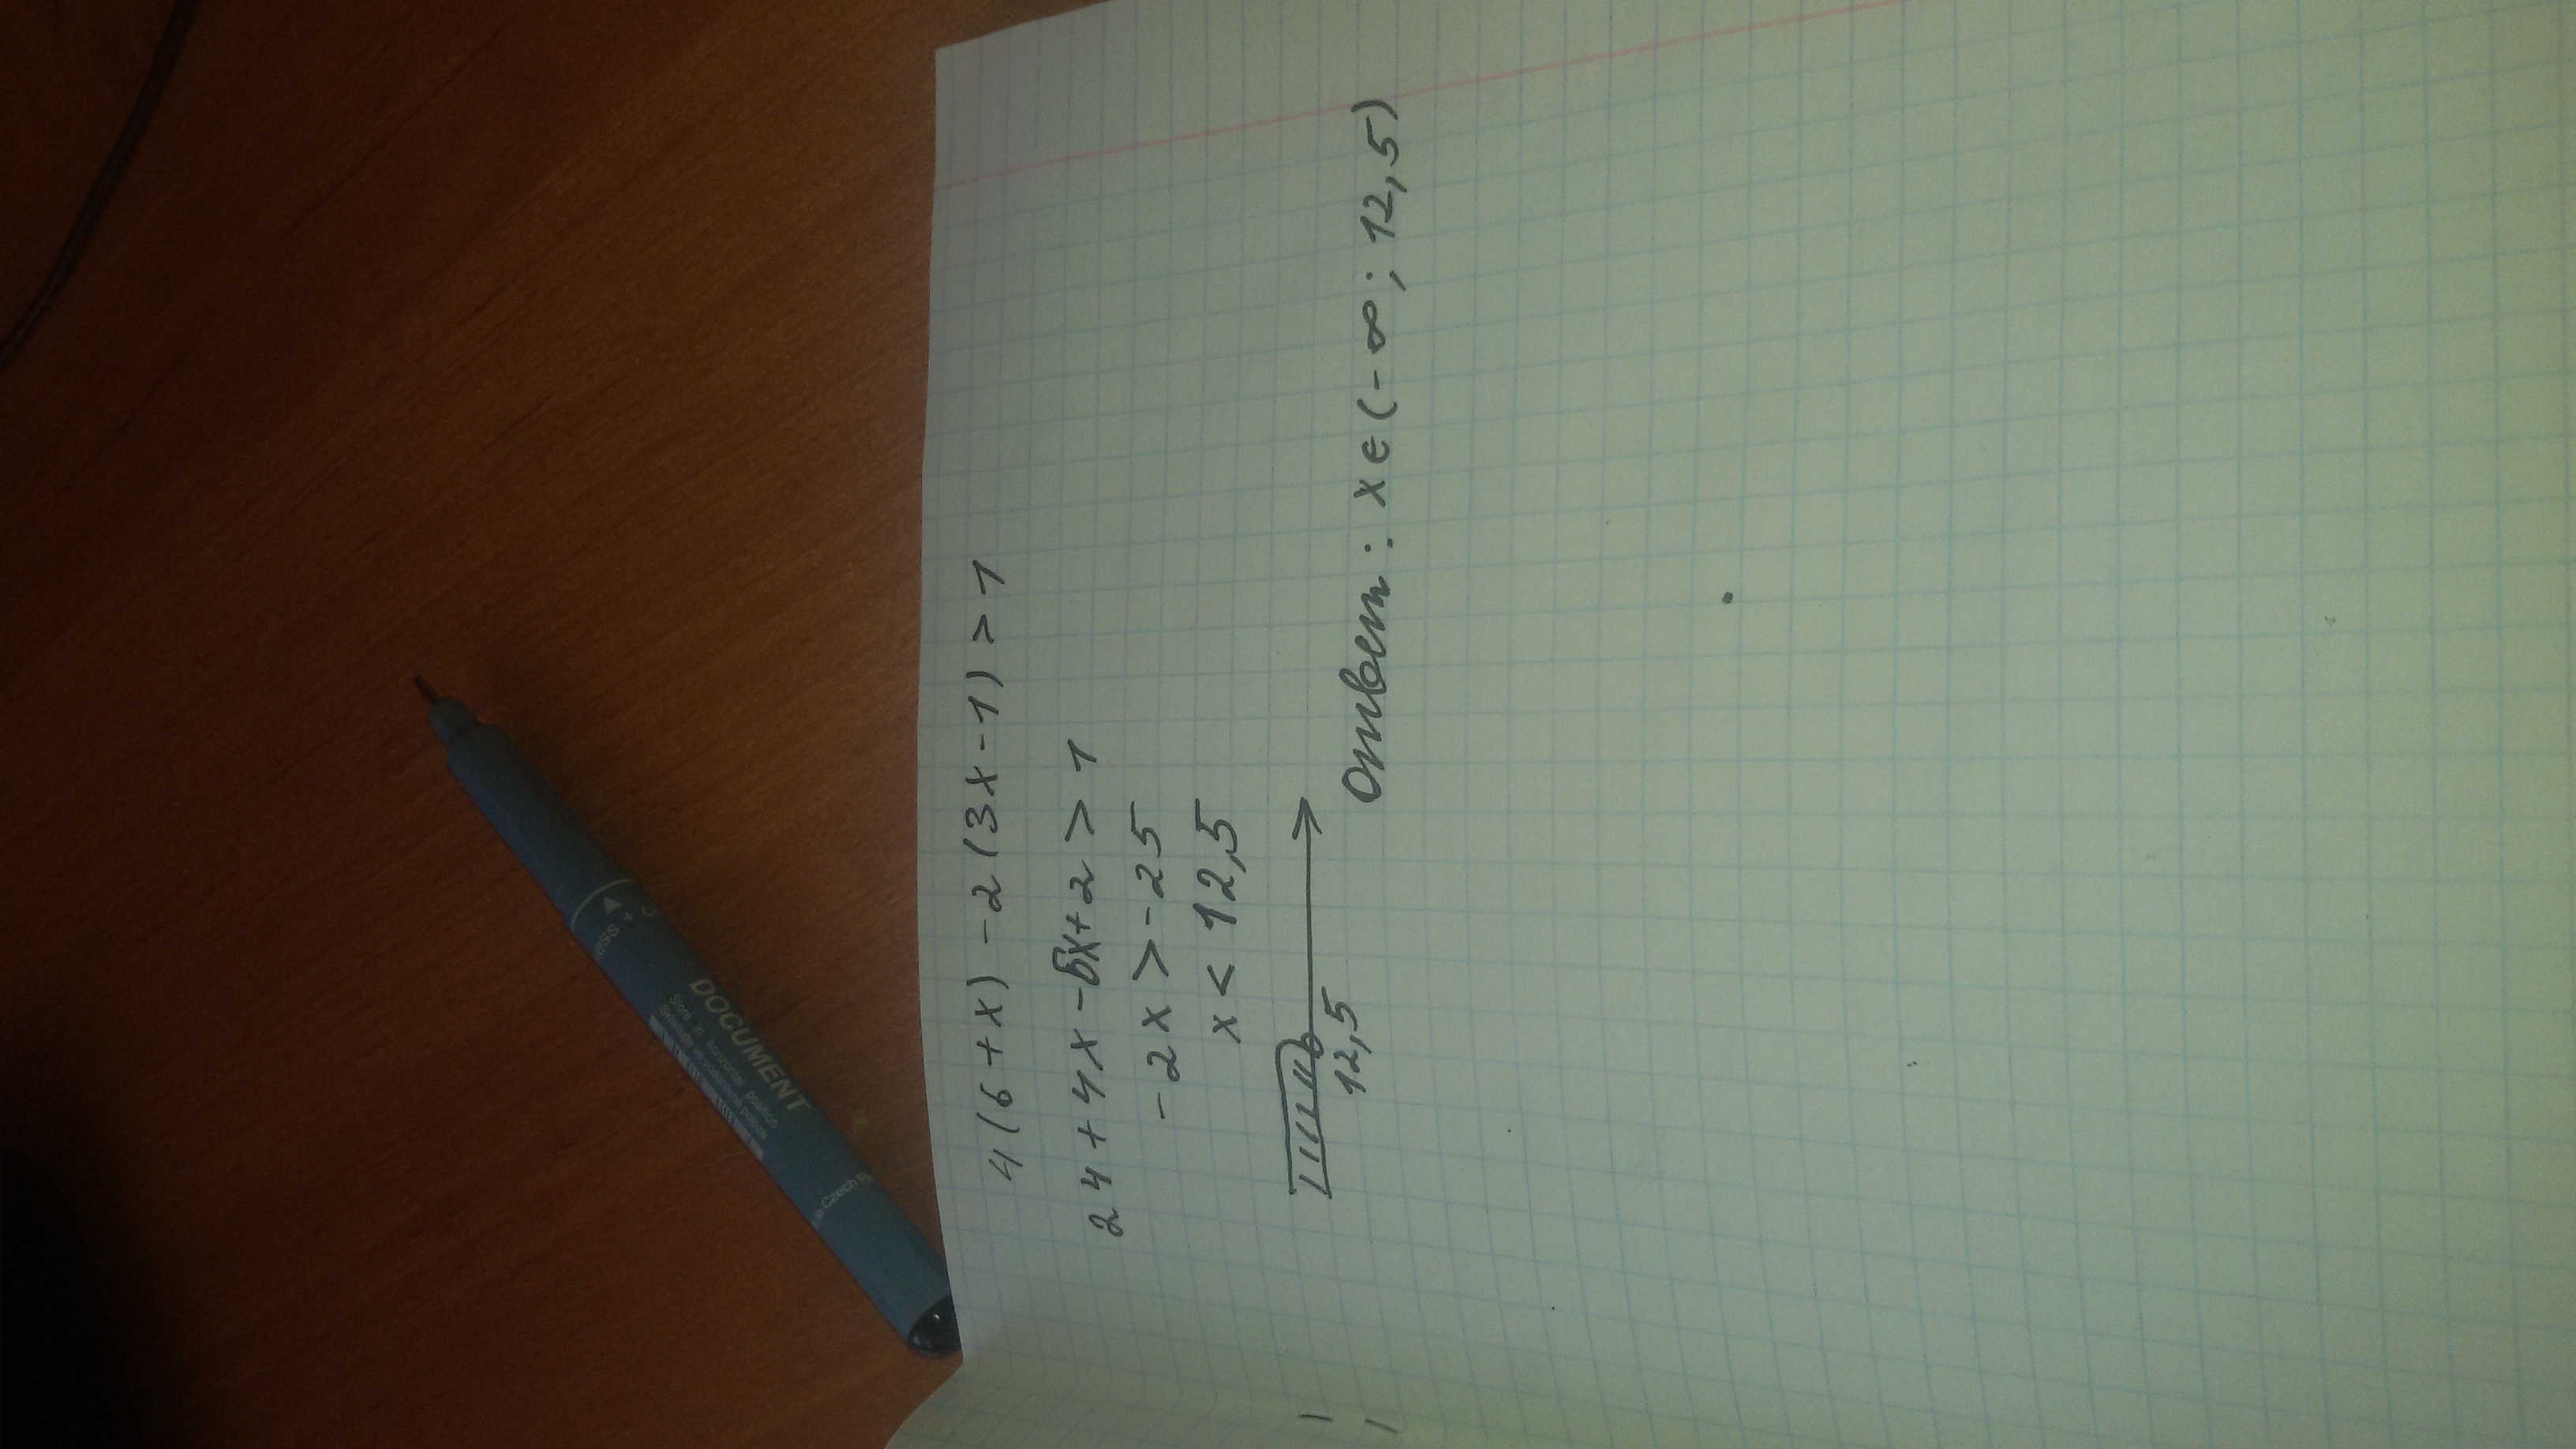 4(6+x)-2(3x-1)>1
24+4x-6x+2>1
-2x>-25
x<12,5
12,5
Ответ: x∈(-∞; 12,5)
DOCUMENT
Store in horizontal position